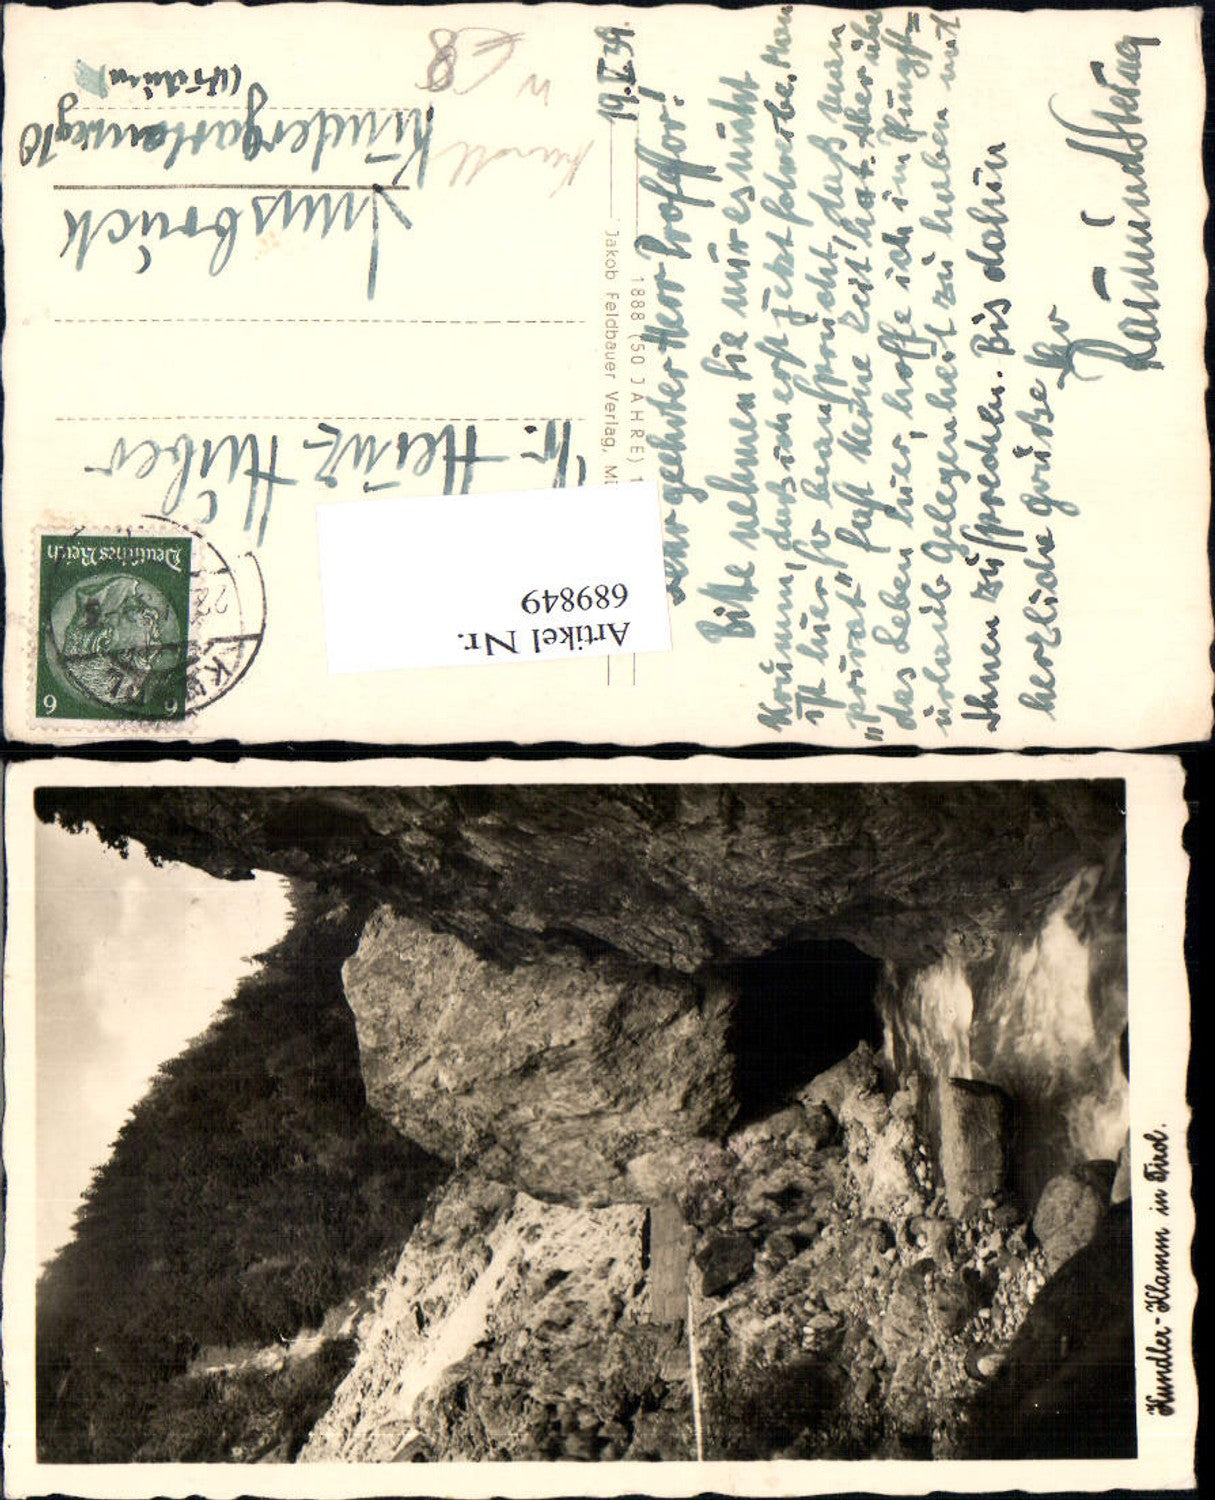 19. V. 39
Sehr geehrter Herr Professor!
Bitte nehmen Sie mir es nicht
krumm, daß ich erst jetzt schreibe. Man
ist hier so beansprucht, daß man
"privat" fast keine Zeit hat. Aber über
das Leben hier, hoffe ich im Pfingst=
urlaub Gelegenheit zu haben mit
Ihnen zu sprechen. Bis dahin
herzliche Grüße
Ihr
Raimund
1888 (50 JAHRE)
Jakob Feldbauer Verlag, M
Deutsches Reich
6 6
22
Heinz
Huber
Innsbruck
Kindergartenweg 10
Artikel Nr.
689849
Kundler-Klamm in Tirol.